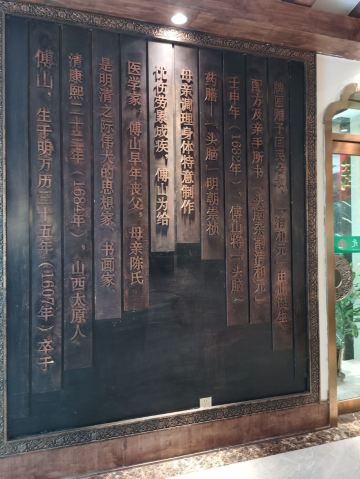 傅山，生于明万历三十五年（1607年）卒于
清康熙二十三年（1684年），山西太原人
是明清之际伟大的思想家、书画家、
医学家，傅山早年丧父，母亲陈氏
忧伤劳累成疾，傅山为给
母亲调理身体特意制作
药膳—头脑，明朝崇祯
壬申年（1632年）傅山将《头脑》
配方及亲手所书《头脑杂割清和元》
牌匾赠予回民 清和元 由此诞生